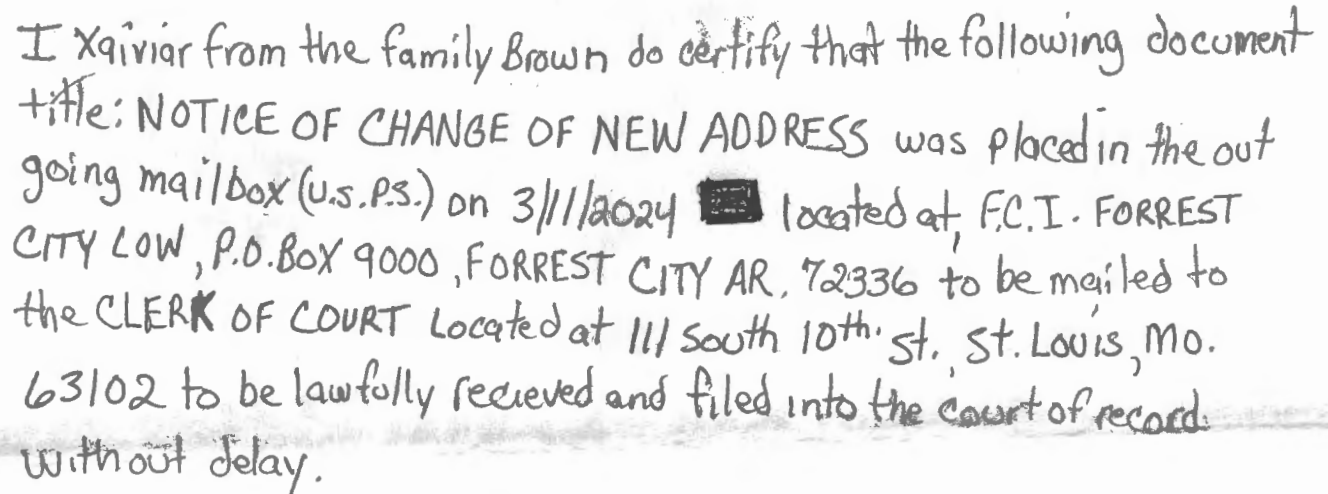 I Xaiviar from the family Brown do certify that the following document
title: NOTICE OF CHANGE OF NEW ADDRESS was placed in the out
going mailbox (u.s.p.s.) on 3/11/2024 located at, F.C.I. FORREST
CITY LOW, P.O. BOX 9000, FORREST CITY AR. 72336 to be mailed to
the CLERK OF COURT Located at 111 South 10th. st., St. Louis, Mo.
63102 to be lawfully recieved and filed into the court of record
without delay.